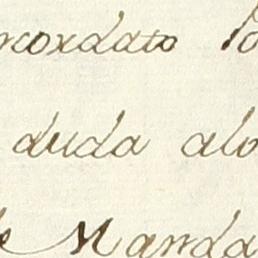 ncordato lo
duda alo
de Manda